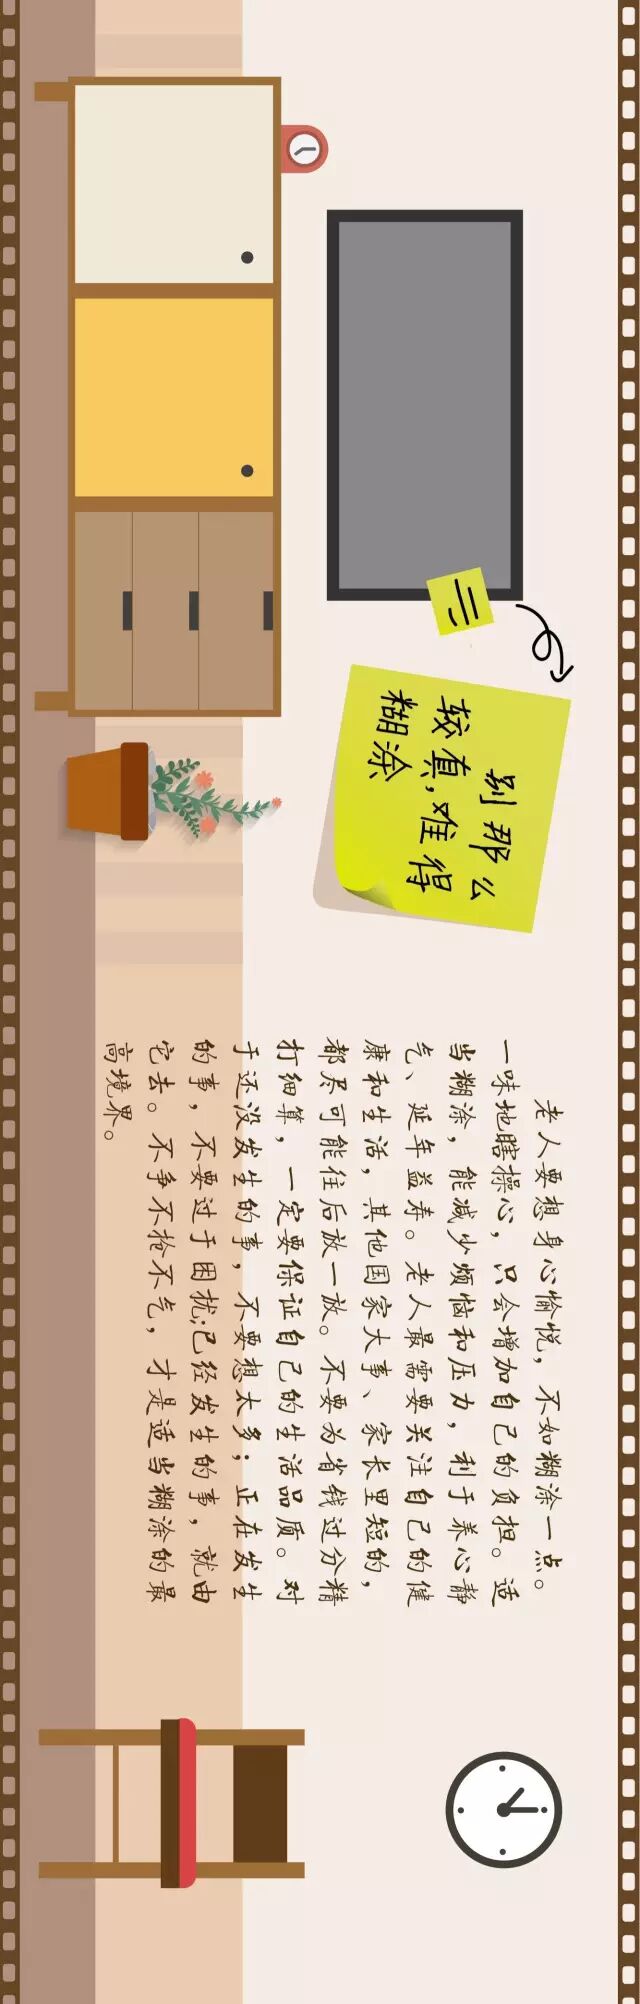 二
别那么
较真，难得
糊涂
老人要想身心愉悦，不如糊涂一点。
一味地瞎操心，只会增加自己的负担。适
当糊涂，能减少烦恼和压力，利于养心静
气、延年益寿。老人最需要关注自己的健
康和生活，其他国家大事、家长里短的，
都尽可能往后放一放。不要为省钱过分精
打细算，一定要保证自己的生活品质。对
于还没发生的事，不要想太多；正在发生
的事，不要过于困扰；已经发生的事，就由
它去。不争不抢不气，才是适当糊涂的最
高境界。